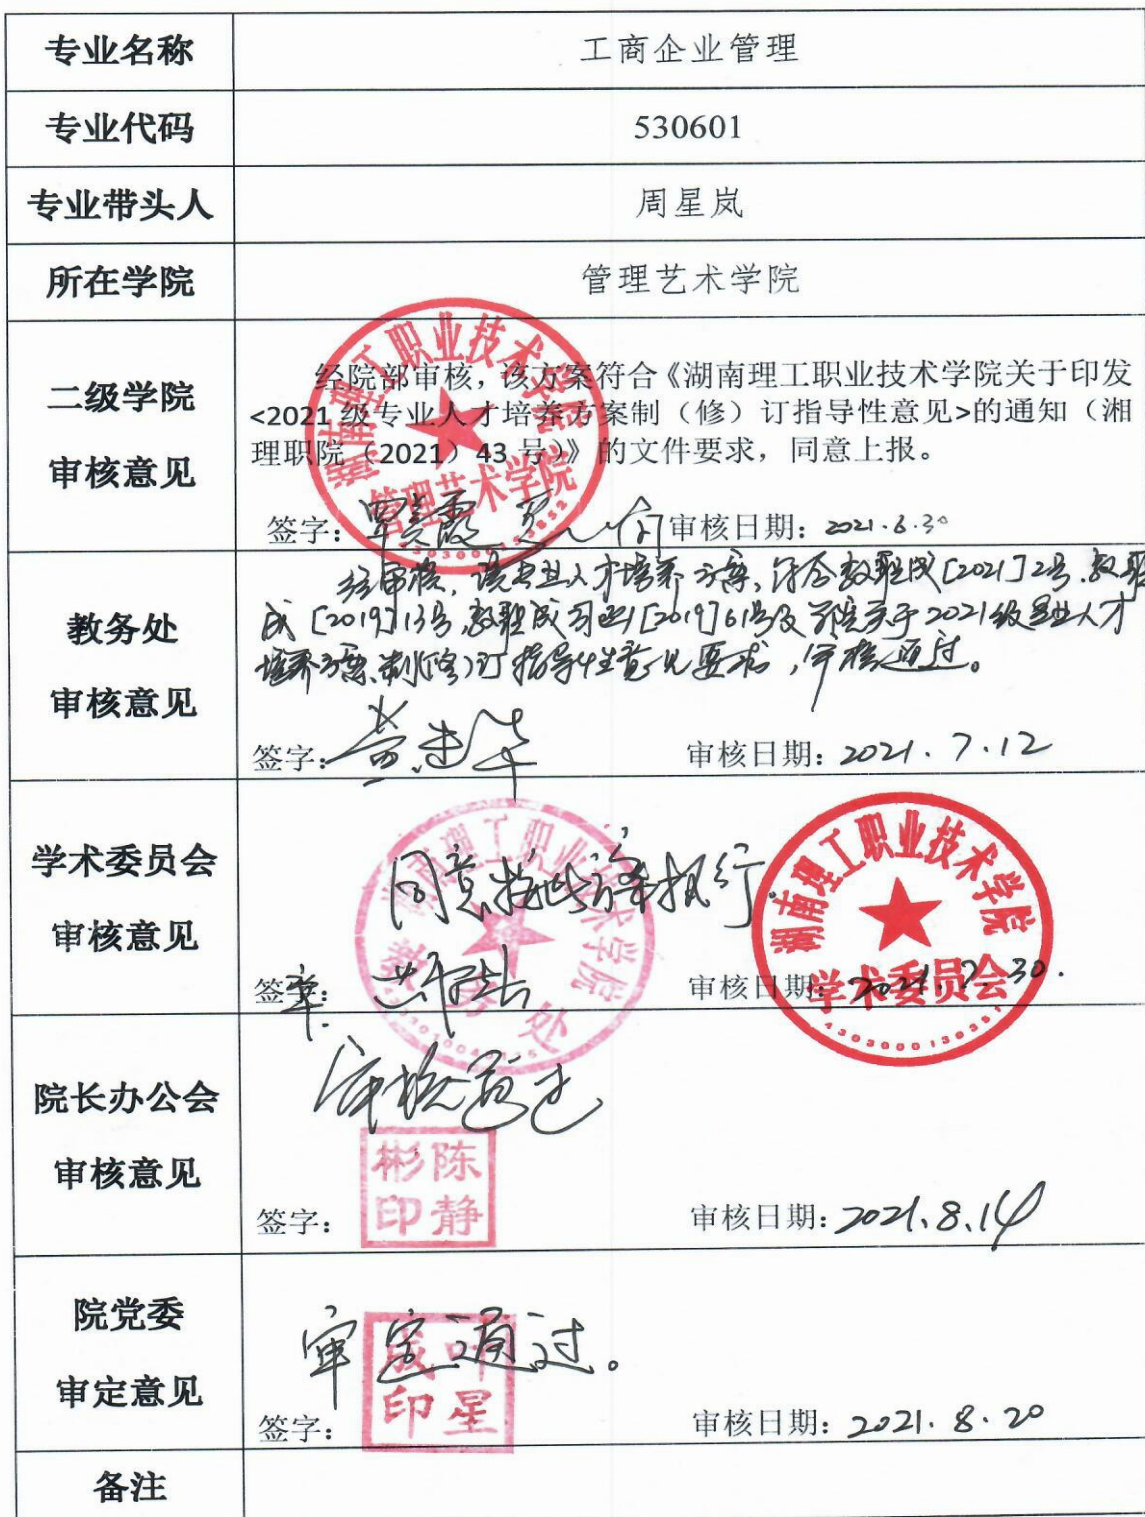 专业名称 工商企业管理
专业代码 530601
专业带头人 周星岚
所在学院 管理艺术学院
二级学院
审核意见
经院部审核，该方案符合《湖南理工职业技术学院关于印发
<2021 级专业人才培养方案制（修）订指导性意见>的通知（湘
理职院（2021）43 号）》的文件要求，同意上报。
签字： 审核日期：2021.6.30
湖南理工职业技术学院
管理艺术学院
教务处
审核意见
经审核，该专业人才培养方案，符合教职成[2021]2号.教职
成[2019]13号,教职成司函[2019]61号及学院关于2021级专业人才
培养方案制(修)订指导性意见要求，审核通过。
签字： 审核日期：2021.7.12
学术委员会
审核意见
同意按此方案执行.
签字： 审核日期：2021.7.30.
湖南理工职业技术学院
教务处
湖南理工职业技术学院
学术委员会
院长办公会
审核意见
审核通过
签字： 审核日期：2021.8.14
彬陈
印静
院党委
审定意见
审定通过。
签字： 审核日期：2021.8.20
成叶
印星
备注